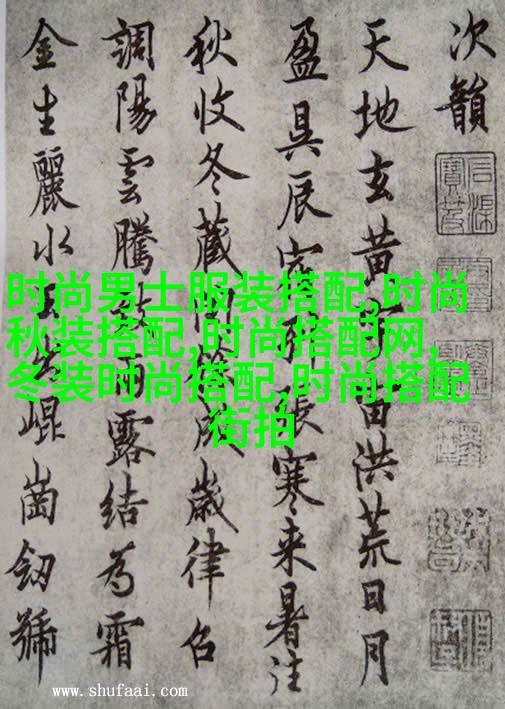 时尚男士服装搭配,时尚
秋装搭配,时尚搭配网,
冬装时尚搭配,时尚搭配
街拍
次韻
天地玄黄宇宙洪荒日月
盈昃辰宿列張寒来暑往
秋收冬藏閏餘成歲律召
調陽雲騰致雨露結為霜
金生麗水玉出崐崗劒號
www.shufaai.com